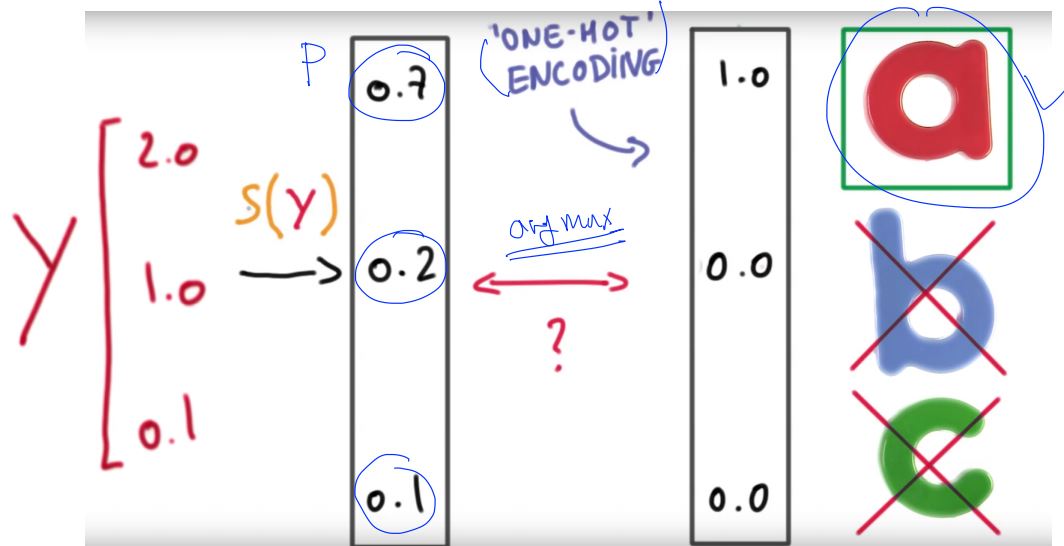 Y
2.0
1.0
0.1
S(Y)
P
0.7
0.2
0.1
'ONE-HOT'
ENCODING
arg max
?
1.0
0.0
0.0
a
b
c